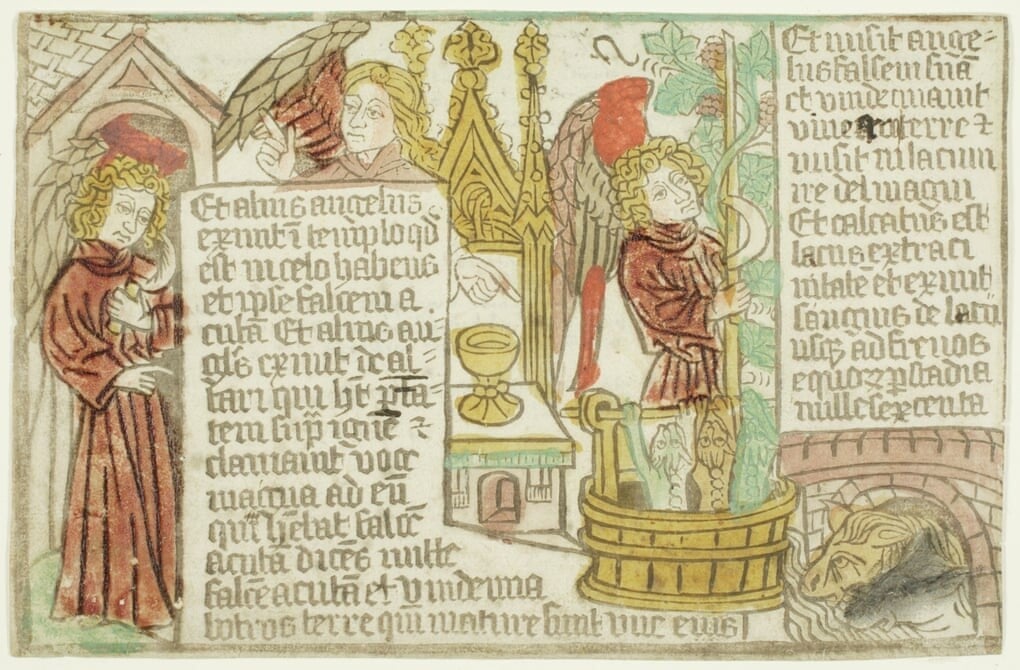 Et alius angelus
exiuit ī templo qd̄
est in celo habens
et ipse falcem a
cutā Et alius an⸗
gl's exiuit de al⸗
tari qui ht̄ ptā
tem sup̄ ignē ⁊
clamauit voce
magna ad eū
qui hēbat falcē
acutā dicēs mitte
falcē acutā et vindemia
botros terre qm̄ mature sūt vue eius
Et misit ange⸗
lus falcem suā
et vindemauit
vineā terre ⁊
misit in lacum
ire dei magni
Et calcatus est
lacus extra ci
uitatē et exiuit
sanguis de lacu
usq̄ ad frenos
equoꝝ p stadia
mille sexcenta